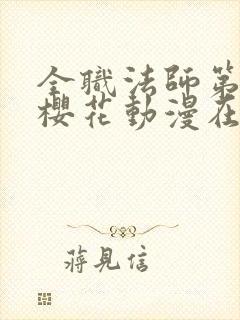 全職法師第
櫻花動漫在
蔣見信